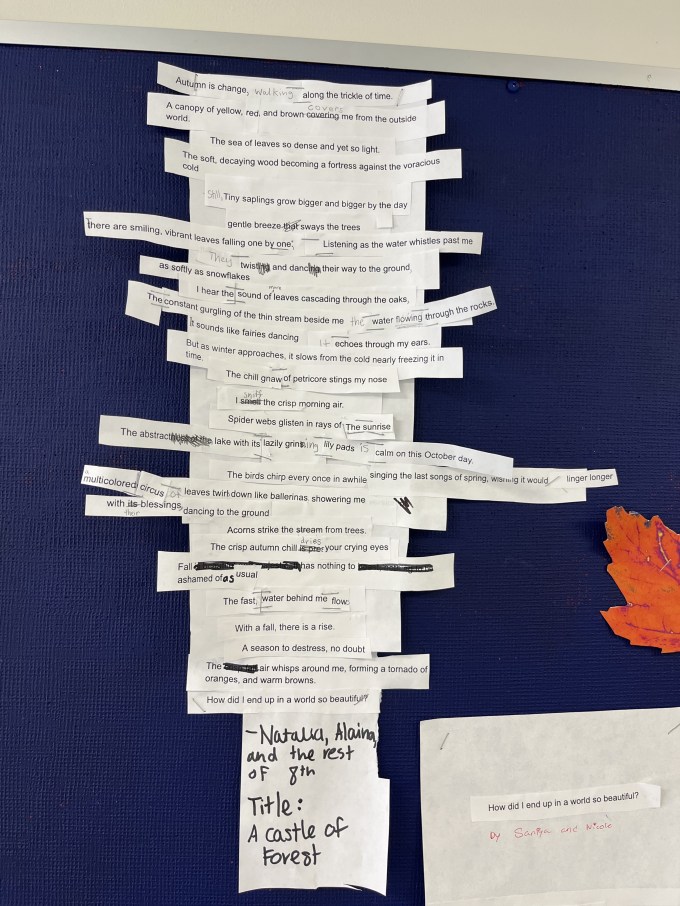 Autumn is change, walking along the trickle of time.
covers
A canopy of yellow, red, and brown covering me from the outside
world.
The sea of leaves so dense and yet so light.
The soft, decaying wood becoming a fortress against the voracious
cold
Still, Tiny saplings grow bigger and bigger by the day
gentle breeze that sways the trees
There are smiling, vibrant leaves falling one by one. Listening as the water whistles past me
They twisting and dancing their way to the ground,
as softly as snowflakes
I hear the sound of leaves cascading through the oaks,
The constant gurgling of the thin stream beside me the water flowing through the rocks.
It sounds like fairies dancing It echoes through my ears.
But as winter approaches, it slows from the cold nearly freezing it in
time.
The chill gnaw of petricore stings my nose
sniff
I smell the crisp morning air.
Spider webs glisten in rays of The sunrise
The abstract the lake with its lazily grinning lily pads is calm on this October day.
The birds chirp every once in awhile singing the last songs of spring, wishing it would linger longer
a multicolored circus of leaves twirl down like ballerinas showering me
with its blessings dancing to the ground
their
Acorns strike the stream from trees.
dries
The crisp autumn chill your crying eyes
Fall has nothing to
ashamed of as usual
The fast, water behind me flow.
With a fall, there is a rise.
A season to destress, no doubt
The air whisps around me, forming a tornado of
oranges, and warm browns.
How did I end up in a world so beautiful?
-Natalia, Alaina,
and the rest
of 8th
Title:
A castle of
Forest
How did I end up in a world so beautiful?
by Saniya and Nicole